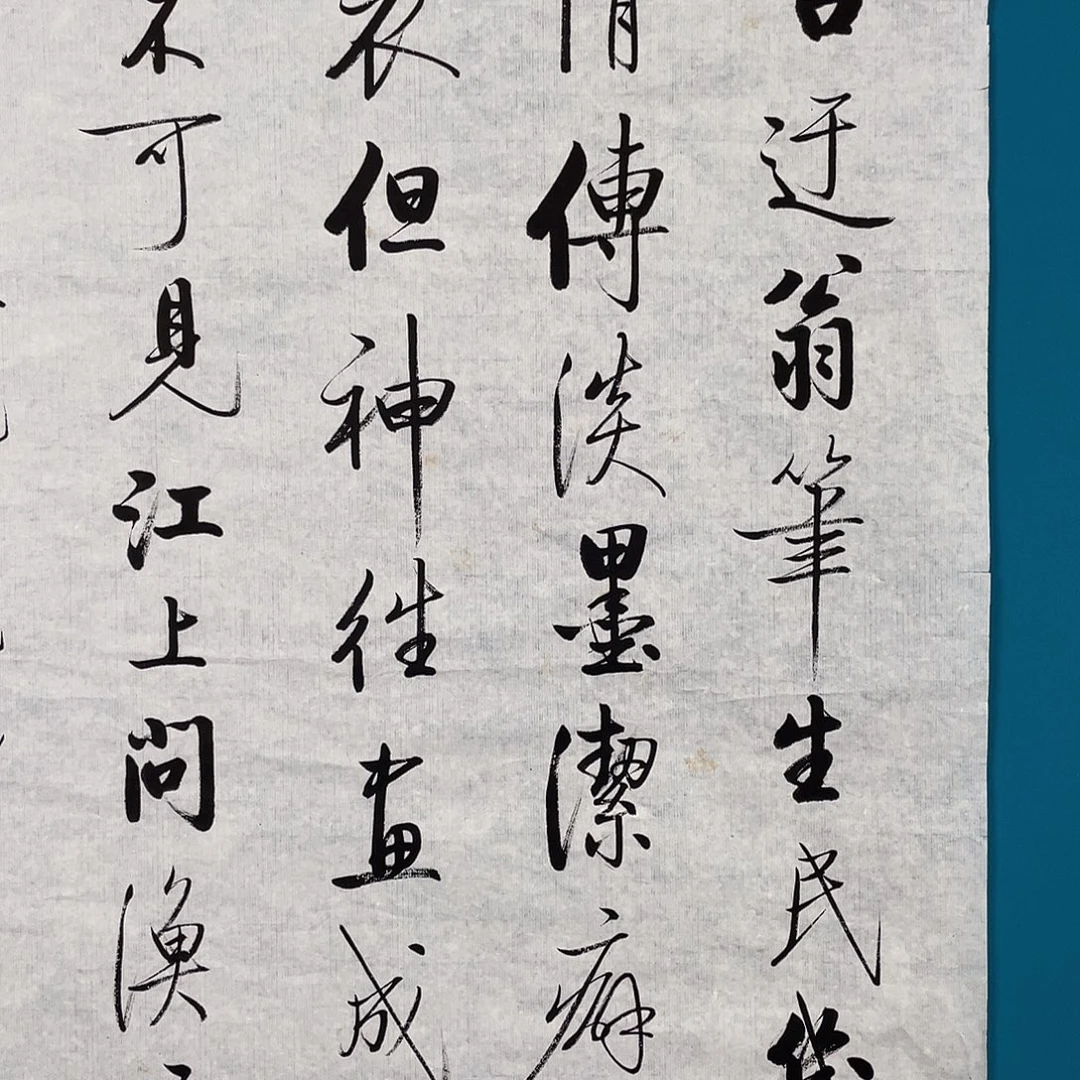 迂翁筆生民
傳淡墨潔癖
衣但神往畫成
不可見江上問漁